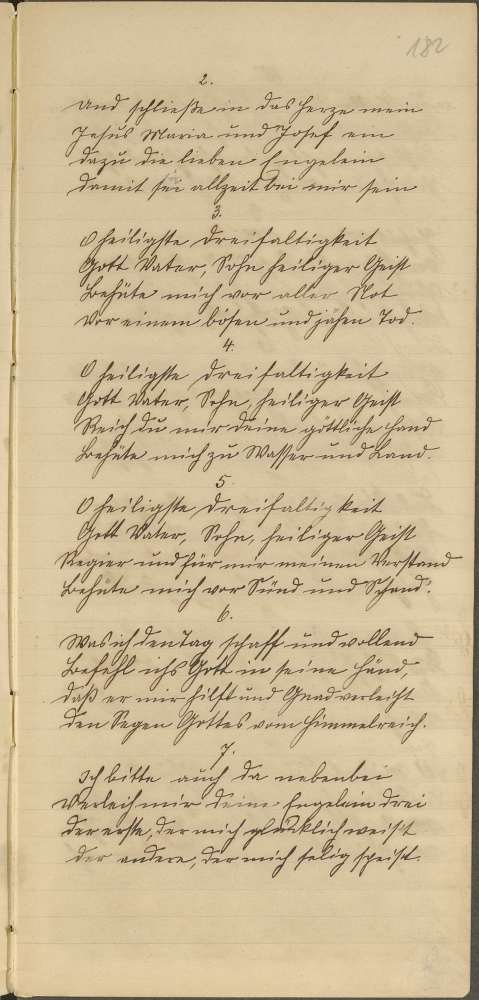 182
2.
und schließe in das Herze mein
Jesus Maria und Josef ein
dazu die lieben Engelein
damit sei allzeit bei mir sein
3.
O heiligste Dreifaltigkeit
Gott Vater, Sohn heiliger Geist
Behüte mich vor aller Not
Vor einem bösen und jähen Tod.
4.
O heiligste Dreifaltigkeit
Gott Vater, Sohn, heiliger Geist
Reich du mir deine göttliche Hand
Behüte mich zu Wasser und Land.
5.
O heiligste Dreifaltigkeit
Gott Vater, Sohn, heiliger Geist
Regier und für mir meinen Verstand
Behüte mich vor Sünd und Schand.
6.
Was ich den Tag schaff und vollend
Befehl ichs Gott in seine Händ,
daß er mir hilft und Gnad verleiht
den Segen Gottes vom Himmelreich.
7.
Ich bitte auch da nebenbei
Verleih mir deine Engelein drei
der erste, der mich glücklich weist
der andere, der mich selig speist.